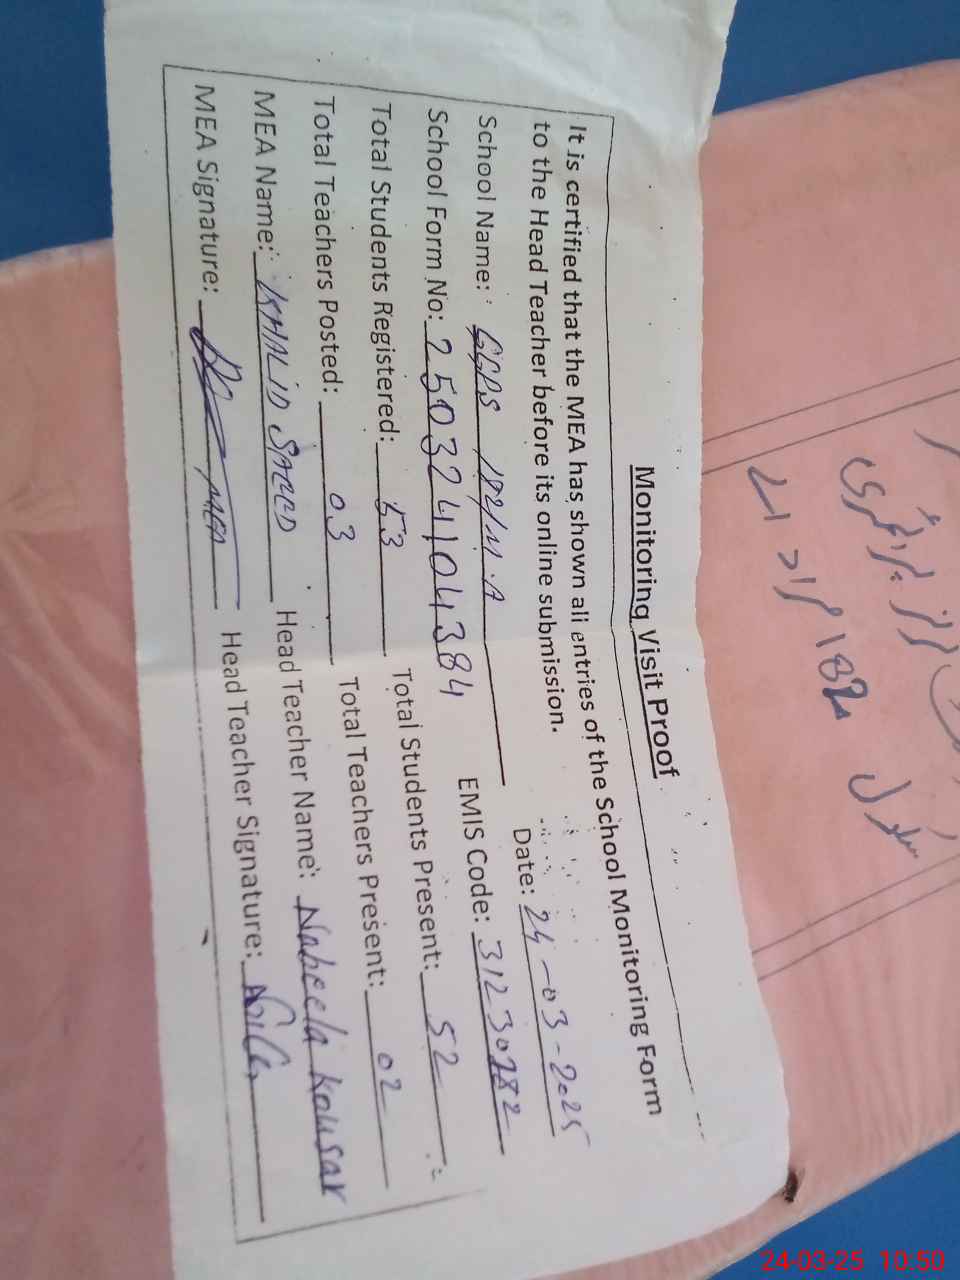 Monitoring Visit Proof
It is certified that the MEA has shown all entries of the School Monitoring Form
to the Head Teacher before its online submission.
Date: 24-03-2025
School Name: GGPS 182/M.A
EMIS Code: 31230282
School Form No: 250324104384
Total Students Registered: 53 Total Students Present: 52
Total Teachers Posted: 03 Total Teachers Present: 02
MEA Name: KHALID SAEED Head Teacher Name: Nabeela Kousar
MEA Signature: MEA Head Teacher Signature:
182
24-03-25 10:50